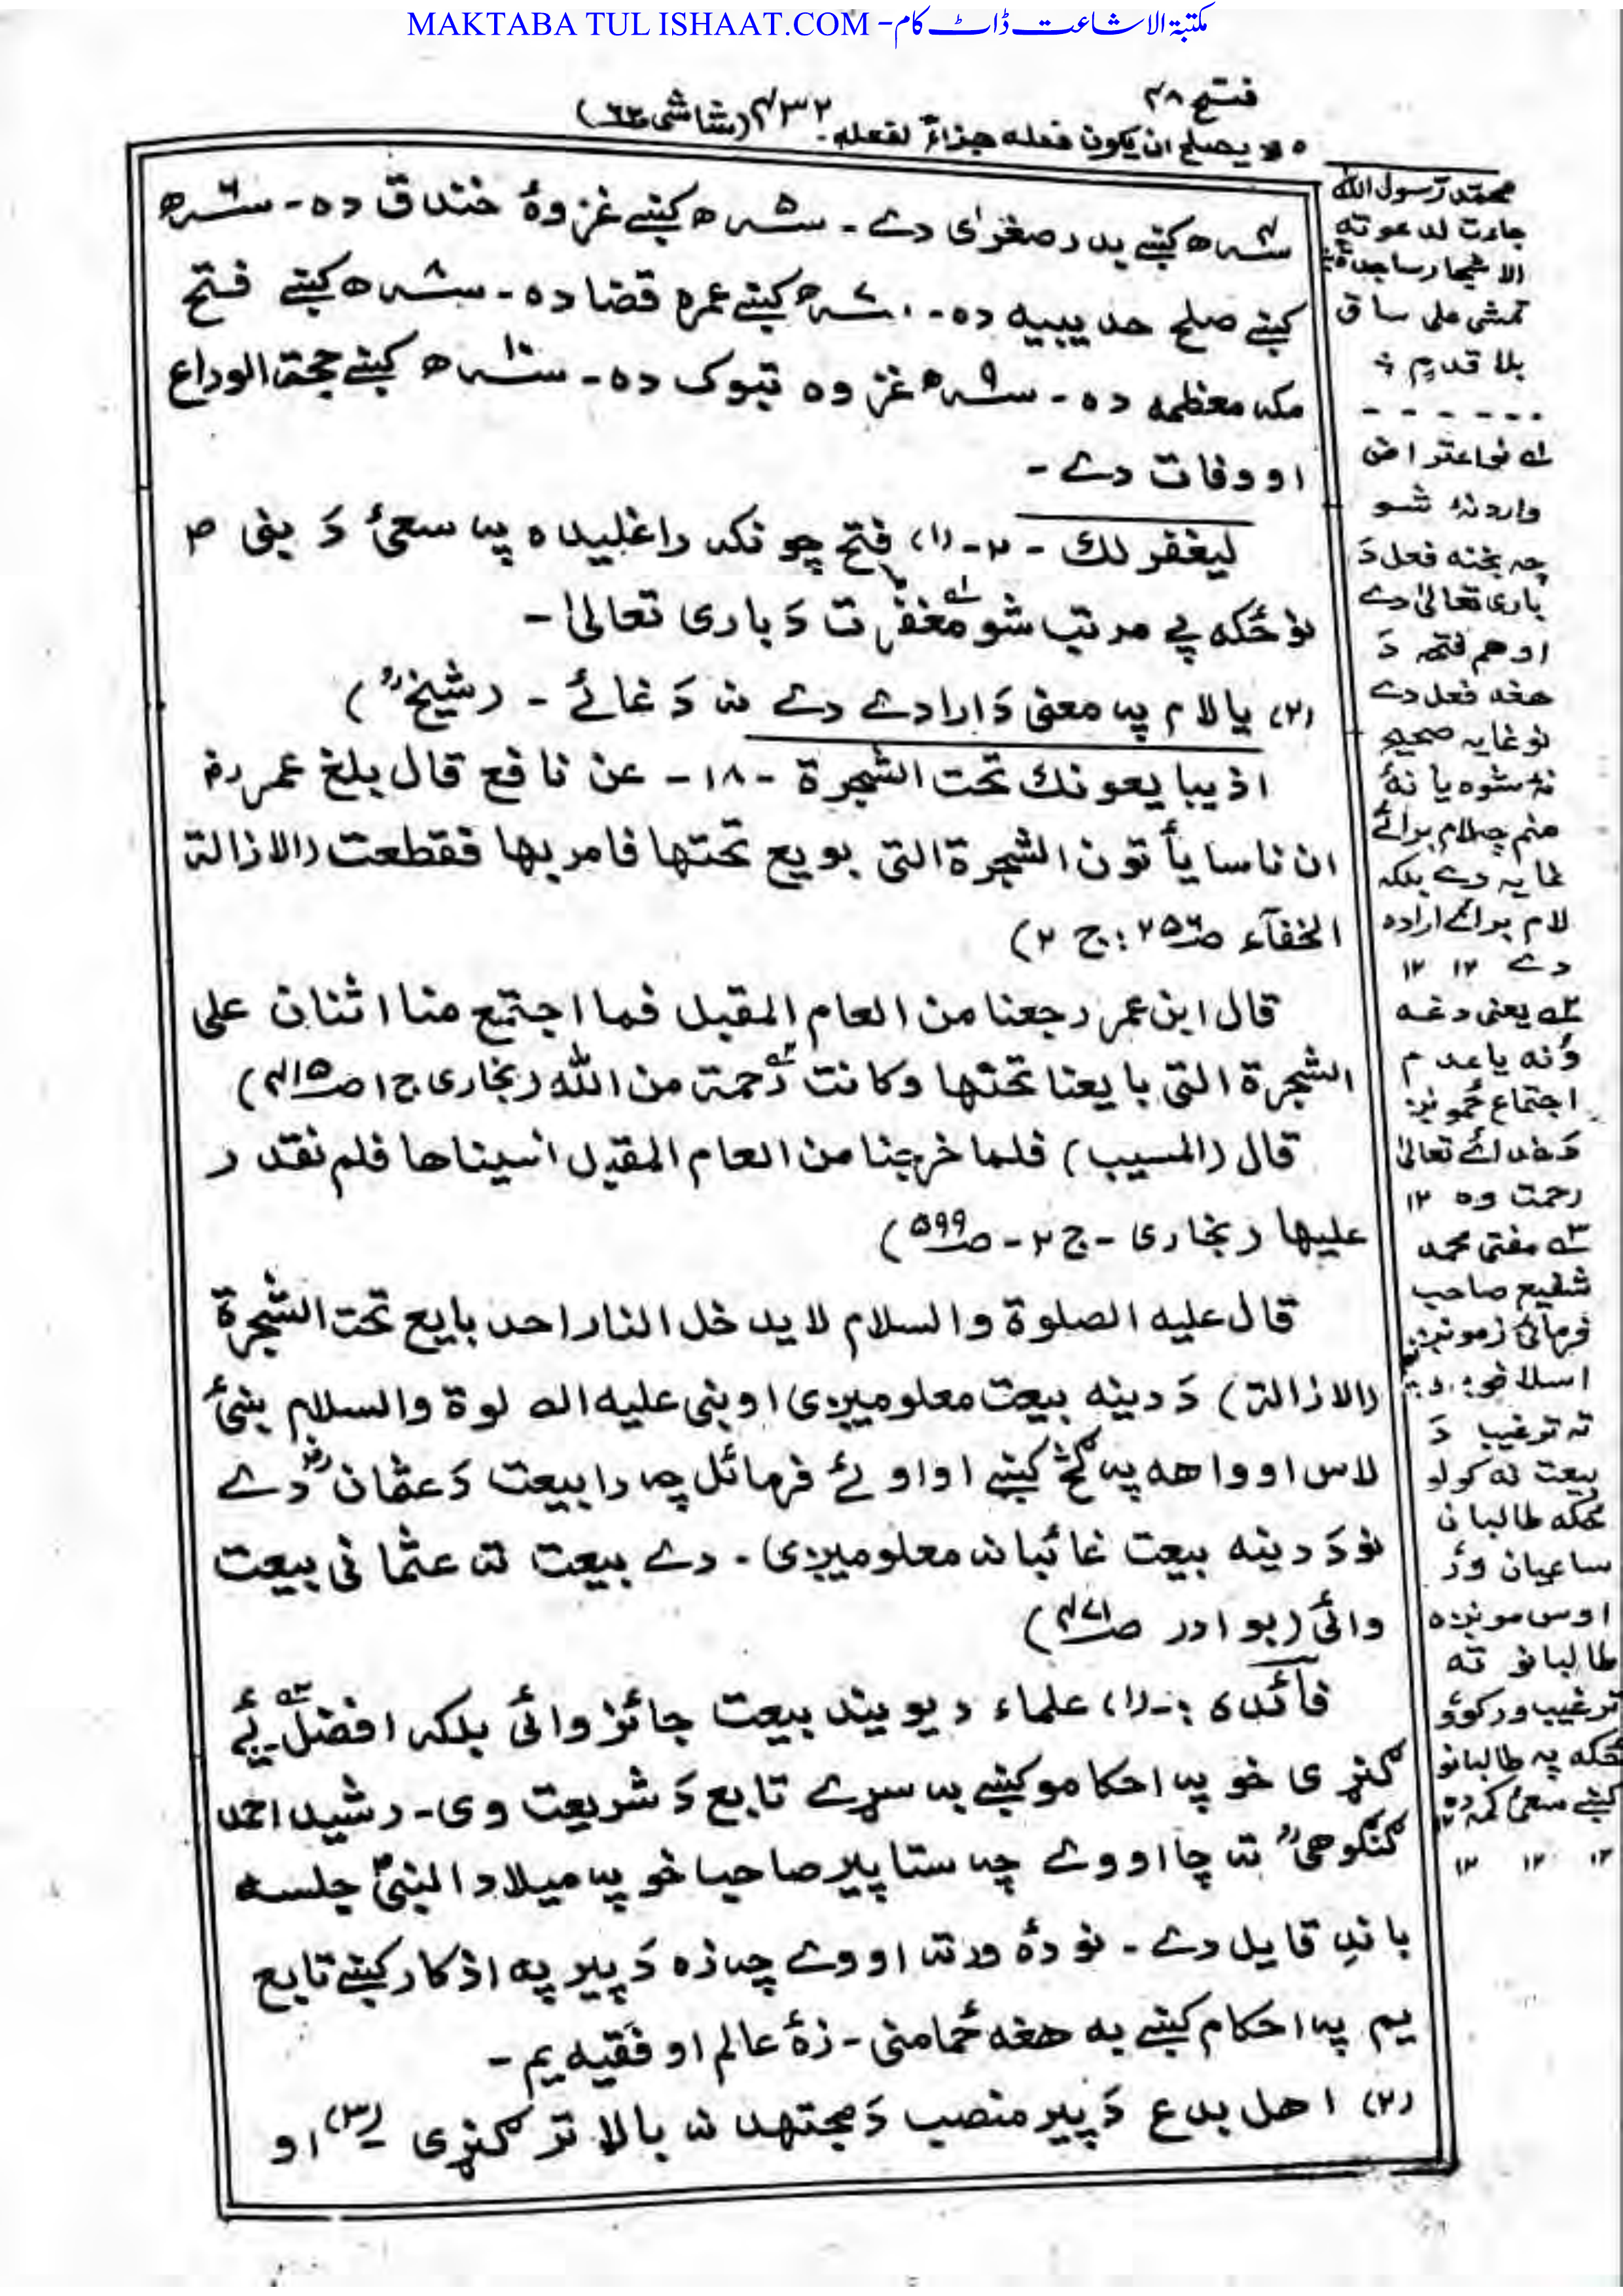 MAKTABA TUL ISHAAT.COM - مکتبۃ الاشاعت ڈاٹ کام
فتح ۴۸
۴۳۲
ہ لا يصلح ان يكون فعله جزاءً لفعله۔ (شاشی ص۶۳)
سنہ۴ھ کښے بدر صغرٰی دے ۔ سنہ۵ھ کښے غزوۂ خندق دہ ۔ سنہ۶ھ
کښے صلح حدیبیه دہ ۔ سنہ۷ھ کښے عمرہ قضا دہ ۔ سنہ۸ھ کښے فتح
مکہ معظمه دہ ۔ سنہ۹ھ غزوہ تبوک دہ ۔ سنہ۱۰ھ کښے حجۃ الوداع
او وفات دے ۔
لیغفر لك - ۲ - (۱) فتح چونکہ راغلیدہ پہ سعئ دَ بنی ص
نو ځکه پے مرتب شو مغفرت دَ باری تعالیٰ ۔
(۲) یا لام پہ معنی دَ ارادے دے نہ دَ غائے ۔ (شیخؒ)
اذ یبایعونك تحت الشجرة - ۱۸ - عن نافع قال بلغ عمر رض
ان ناسا يأتون الشجرة التی بویع تحتها فامر بها فقطعت (الازالة
الخفآء ص۲۵۶ : ج ۲)
قال ابن عمر رجعنا من العام المقبل فما اجتمع منا اثنان علی
الشجرة التی بایعنا تحتها وکانت رحمة من الله (بخاری ج۱ ص۴۱۵)
قال (المسیب) فلما خرجنا من العام المقبل انسیناها فلم نقدر
علیها (بخاری - ج ۲ - ص۵۹۹)
قال علیه الصلوة والسلام لا یدخل النار احد بایع تحت الشجرة
(الازالة) دَ دینه بیعت معلومیږی او بنی علیه الصلوة والسلام ښئ
لاس اوواهه پہ کخ کښے او اوئے فرمائل چہ دا بیعت دَ عثمانؓ دے
نو دَ دینه بیعت غائبانہ معلومیږی ۔ دے بیعت تہ عثمانی بیعت
وائی (بوادر ص۴۷۱)
فآئدی :- (۱) علماء دیوبند بیعت جائز وائی بلکہ افضل ئے
گنړی خو پہ احکامو کښے بہ سړے تابع دَ شریعت وی ۔ رشید احمد
گنگوهیؒ تہ چا اووے چہ ستا پیر صاحب خو پہ میلاد النبیؐ جلسہ
باندِ قایل دے ۔ نو دۂ ورتہ اووے چہ زہ دَ پیر پہ اذکار کښے تابع
یم پہ احکام کښے بہ هغه ځما منی ۔ زۂ عالم او فقیه یم ۔
(۲) اهل بدع دَ پیر منصب دَ مجتهد نہ بالا تر گنړی (۳) او
محمد رسول الله
جاءت لدعوته
الاشجار ساجدة
تمشی علی ساق
بلا قدم
- - - - - -
۱ے نو اعتراض
وارد نۂ شو
چہ بخنه فعل دَ
باری تعالیٰ دے
او هم فتحہ دَ
هغه فعل دے
نو غایه صحیح
نۂ شوہ یا نۂ
منم چہ لام برائے
غایه دے بلکہ
لام برائے ارادہ
دے ۱۲ ۱۲
۲ے یعنی دغه
وَنه یا عدم
اجتماع ځمونږ
دَ خدائے تعالیٰ
رحمت وہ ۱۲
۳ے مفتی محمد
شفیع صاحب
فرمائی زمونږ
اسلافو
تہ ترغیب دَ
بیعت نہ کولو
ځکه طالبان
ساعیان وؤ
اوس مونږہ
طالبانو تہ
ترغیب ورکوؤ
ځکه پہ طالبانو
کښے سعی کمہ دہ
۱۲ ۱۲ ۱۲